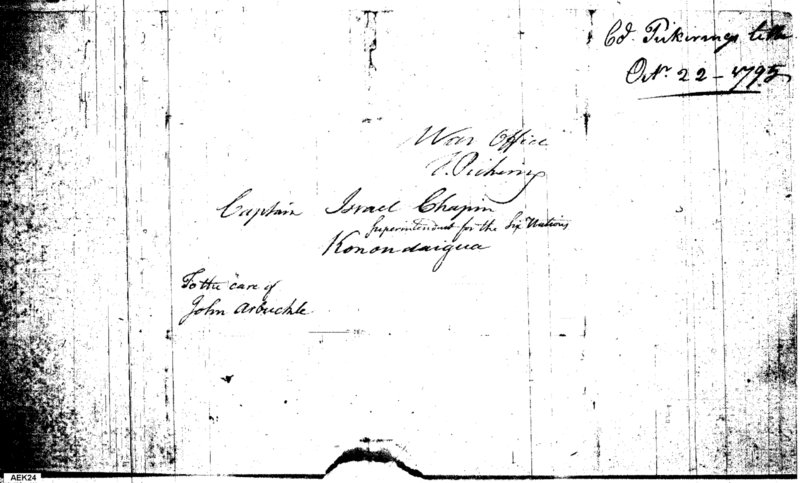 Col. Pickerings letter
Octr. 22 - 1795
War Office
T. Pickering
Captain Israel Chapin
Superintendent for the Six Nations
Konondaigua
To the care of
John Arbuckle
AEK24